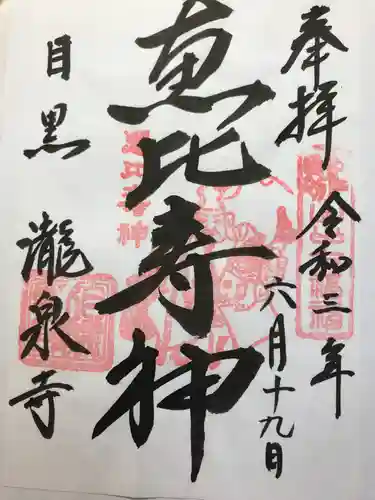 奉拝
令和三年
六月十九日
恵比寿神
目黒
瀧泉寺